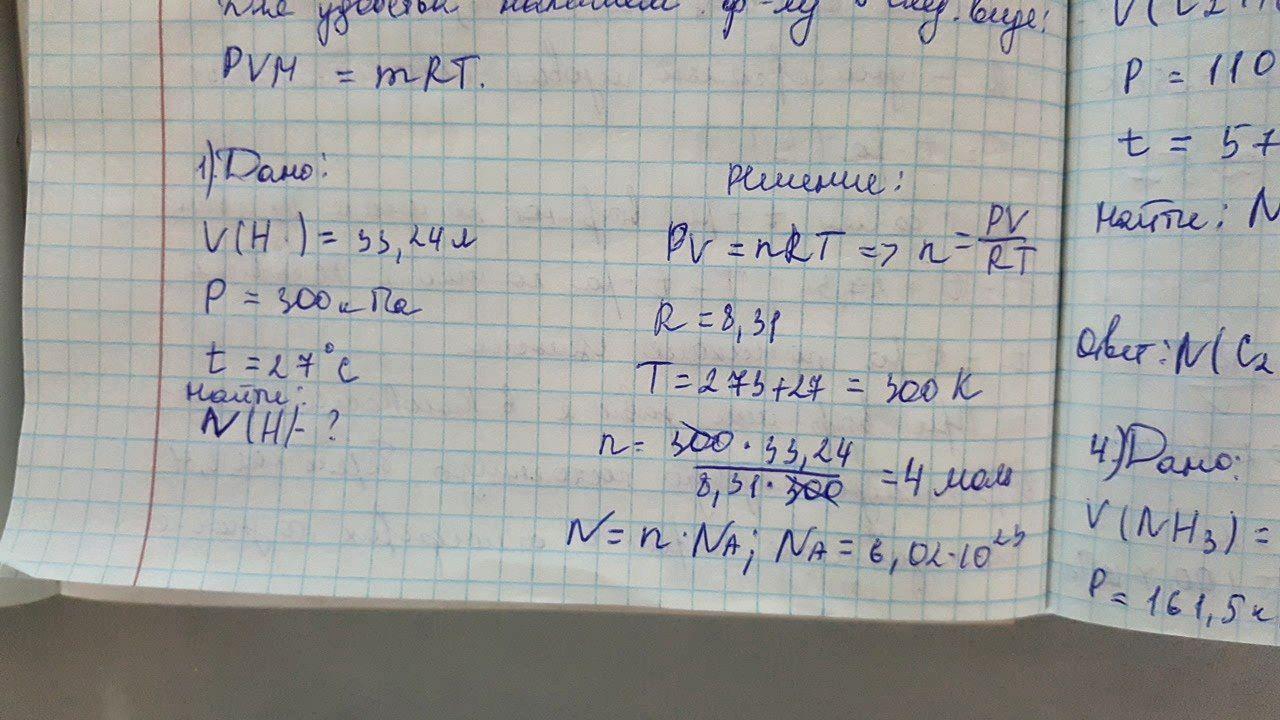 Для удобства напишем ф-лу в след. виде:
PVM = mRT.
1) Дано:
V(H ) = 33,24 л
P = 300 кПа
t = 27°C
найти:
N(H) - ?
Решение:
PV = nRT => n = PV/RT
R = 8,31
T = 273 + 27 = 300 K
n = 300 · 33,24 / 8,31 · 300 = 4 моль
N = n · NA; NA = 6,02 · 10²³
P = 110
t = 57
найти: N
Ответ: N(C2
4) Дано:
V(NH3) =
P = 161,5 к